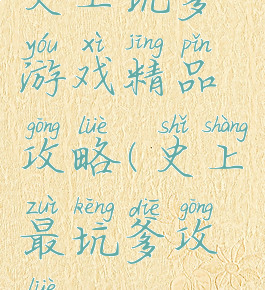 史上坑爹
yóu xì jīng pǐn
游戏精品
gōng lüè shǐ shàng
攻略(史上
zuì kēng diē gōng
最坑爹攻
lüè